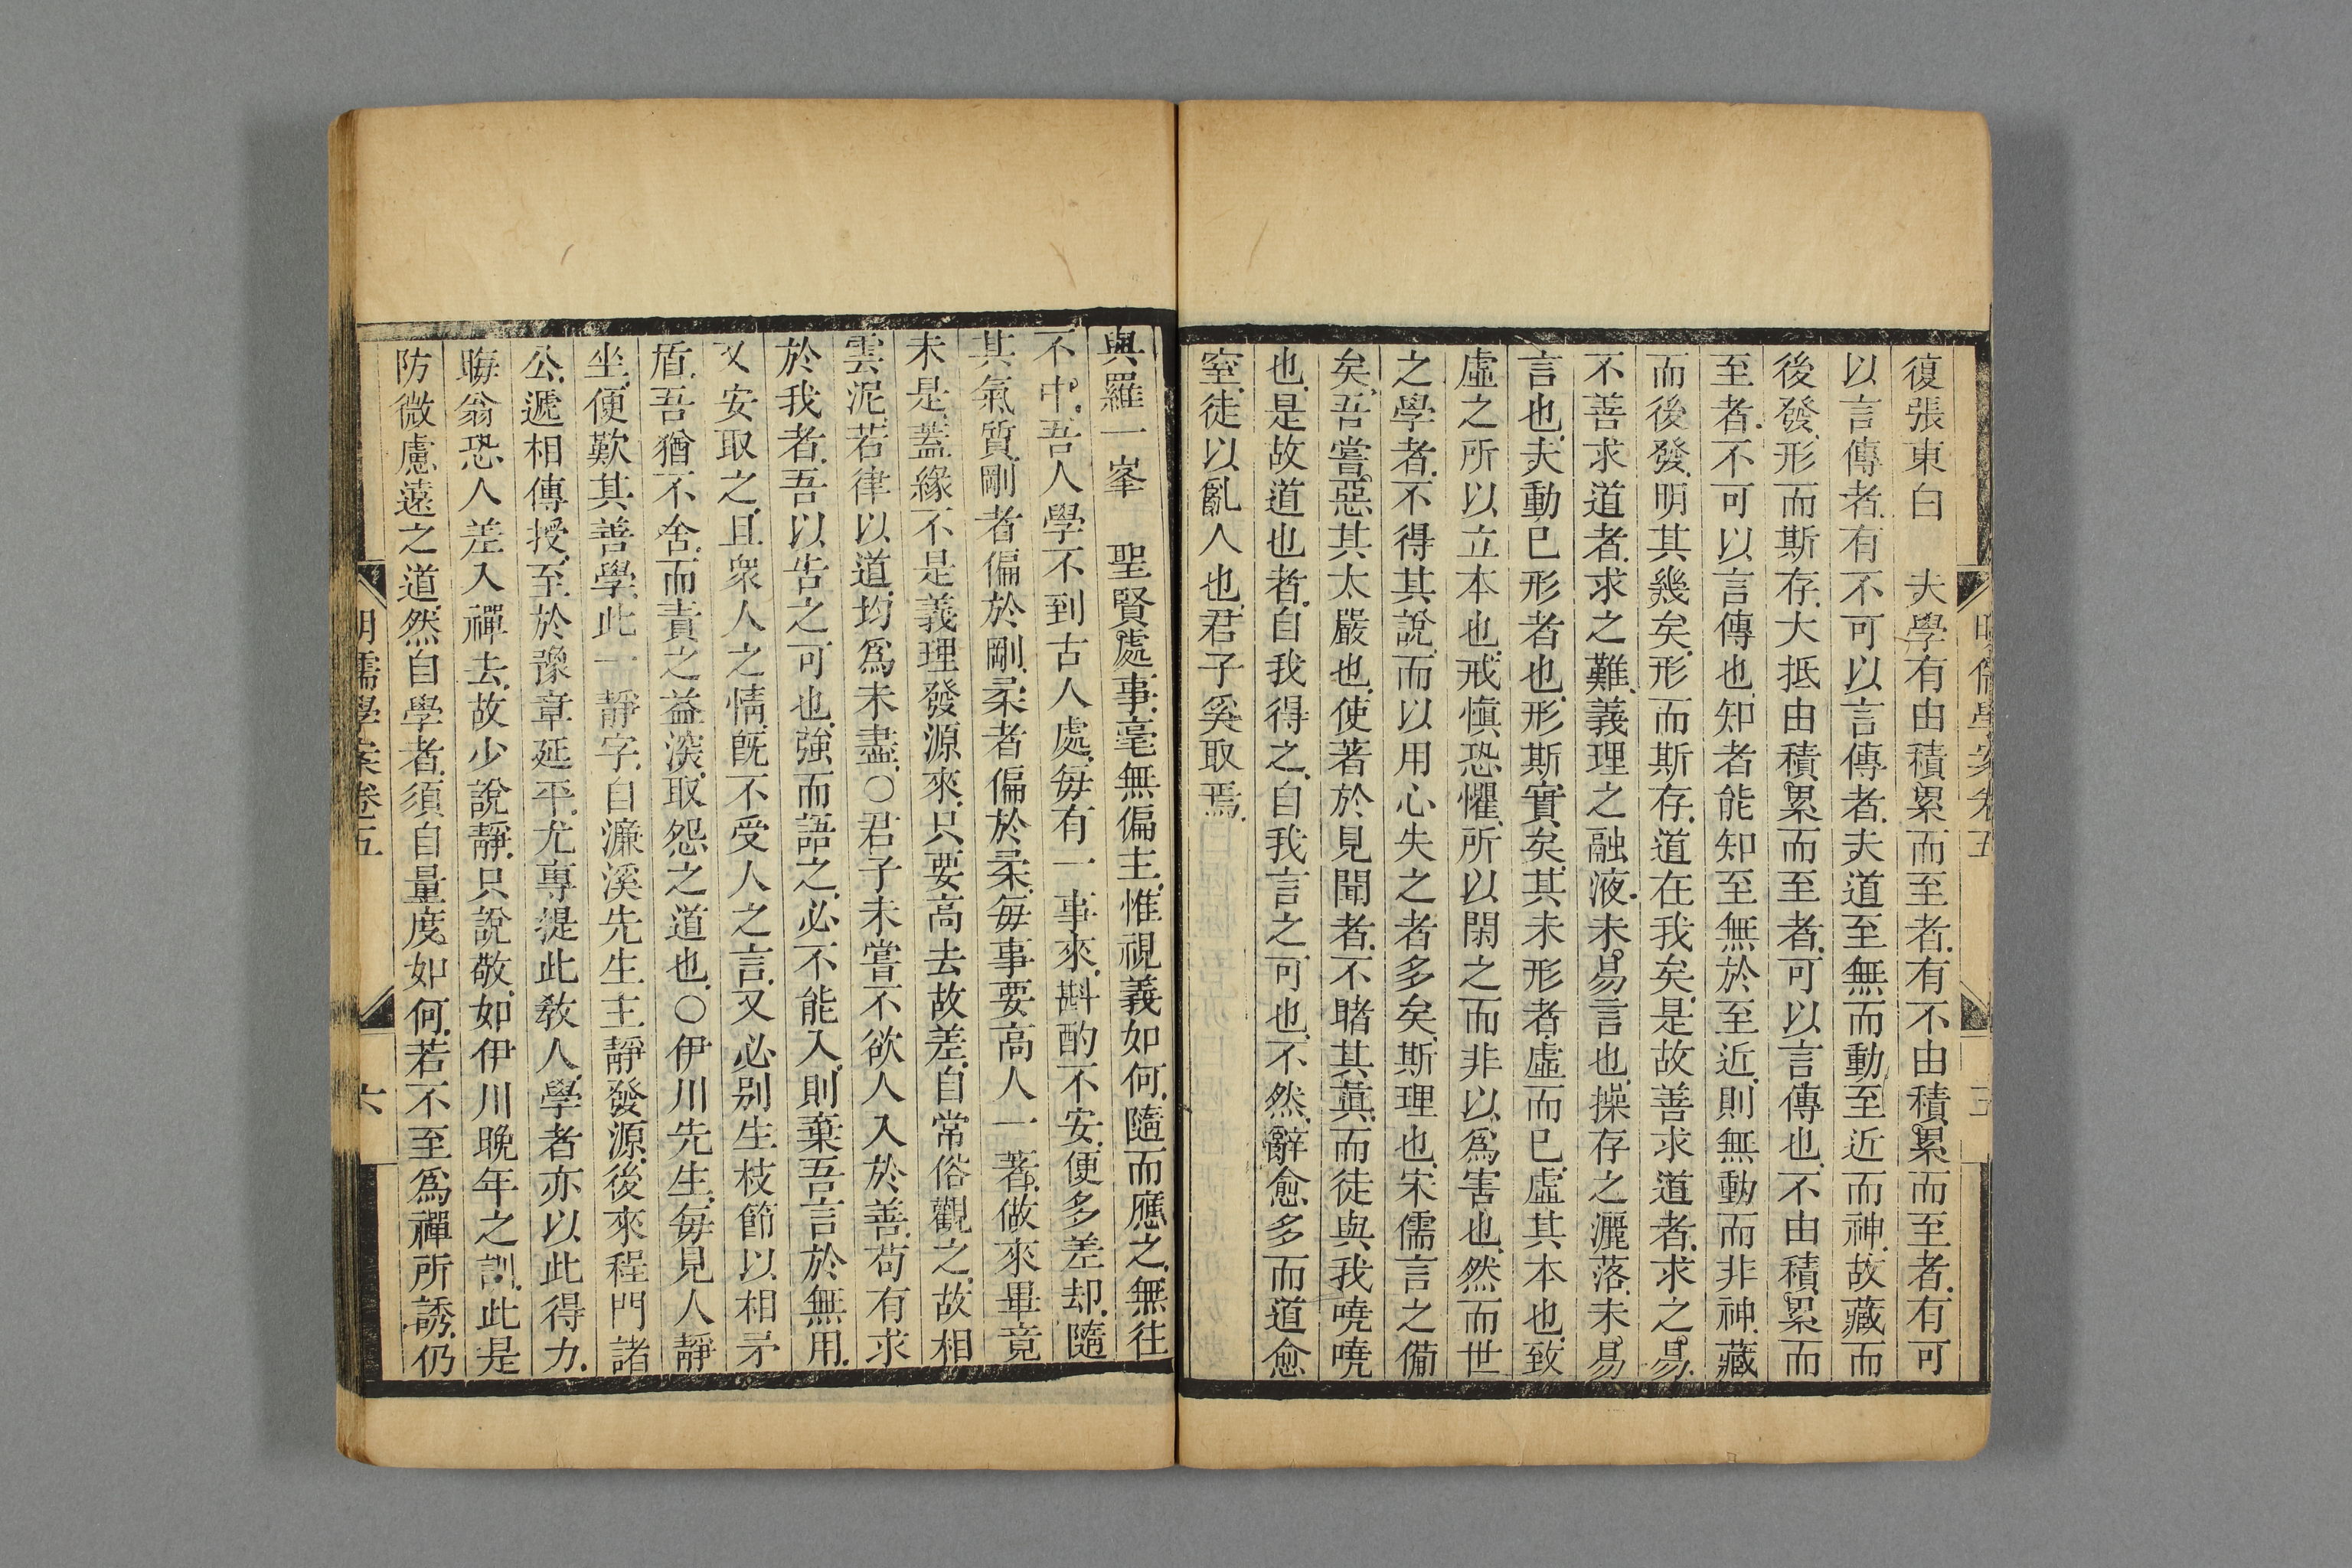 復張東白　夫學有由積累而至者有不由積累而至者有可
以言傳者有不可以言傳者夫道至無而動至近而神故藏而
後發形而斯存大抵由積累而至者可以言傳也不由積累而
至者不可以言傳也知者能知至無於至近則無動而非神藏
而後發明其幾矣形而斯存道在我矣是故善求道者求之易
不善求道者求之難義理之融液未易言也操存之灑落未易
言也夫動已形者也形斯實矣其未形者虛而已虛其本也致
虛之所以立本也戒慎恐懼所以閑之而非以為害也然而世
之學者不得其說而以用心失之者多矣斯理也宋儒言之備
矣吾嘗惡其太嚴也使著於見聞者不睹其真而徒與我嘵嘵
也是故道也者自我得之自我言之可也不然辭愈多而道愈
窒徒以亂人也君子奚取焉
與羅一峯　聖賢處事毫無偏主惟視義如何隨而應之無往
不中吾人學不到古人處每有一事來斟酌不安便多差却隨
其氣質剛者偏於剛柔者偏於柔每事要高人一著做來畢竟
未是蓋緣不是義理發源來只要高去故差自常俗觀之故相
雲泥若律以道均為未盡○君子未嘗不欲人入於善苟有求
於我者吾以告之可也強而語之必不能入則棄吾言於無用
又安取之且眾人之情既不受人之言又必別生枝節以相矛
盾吾猶不舍而責之益深取怨之道也○伊川先生每見人靜
坐便歎其善學此一靜字自濂溪先生主靜發源後來程門諸
公遞相傳授至於豫章延平尤專提此教人學者亦以此得力
晦翁恐人差入禪去故少說靜只說敬如伊川晚年之訓此是
防微慮遠之道然自學者須自量度如何若不至為禪所誘仍
明儒學案卷五
六